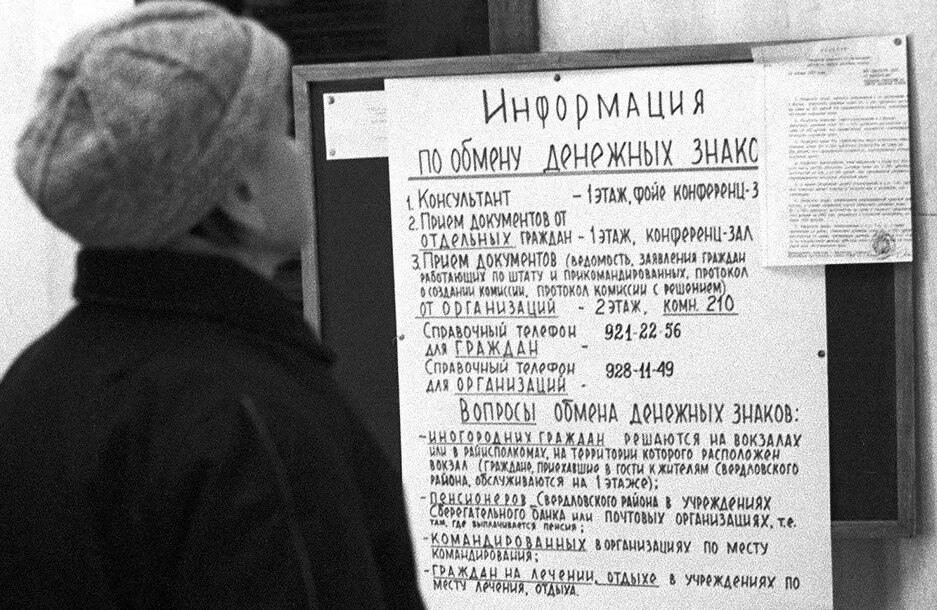 Информация
по обмену денежных знако
1. Консультант - 1 этаж, фойе конференц-з
2. Прием документов от
отдельных граждан - 1 этаж, конференц-зал
3. Прием документов (ведомость, заявления граждан
работающих по штату и прикомандированных, протокол
о создании комиссии, протокол комиссии с решением)
от организаций - 2 этаж, комн. 210
Справочный телефон 921-22-56
для граждан -
Справочный телефон 928-11-49
для организаций -
Вопросы обмена денежных знаков:
- иногородних граждан решаются на вокзалах
или в райисполкомах, на территории которого расположен
вокзал (граждане, приехавшие в гости к жителям Свердловского
района, обслуживаются на 1 этаже);
- пенсионеров Свердловского района в учреждениях
Сберегательного банка или почтовых организациях, т.е.
там, где выплачивается пенсия;
- командированных в организациях по месту
командирования;
- граждан на лечении, отдыхе в учреждениях по
месту лечения, отдыха.